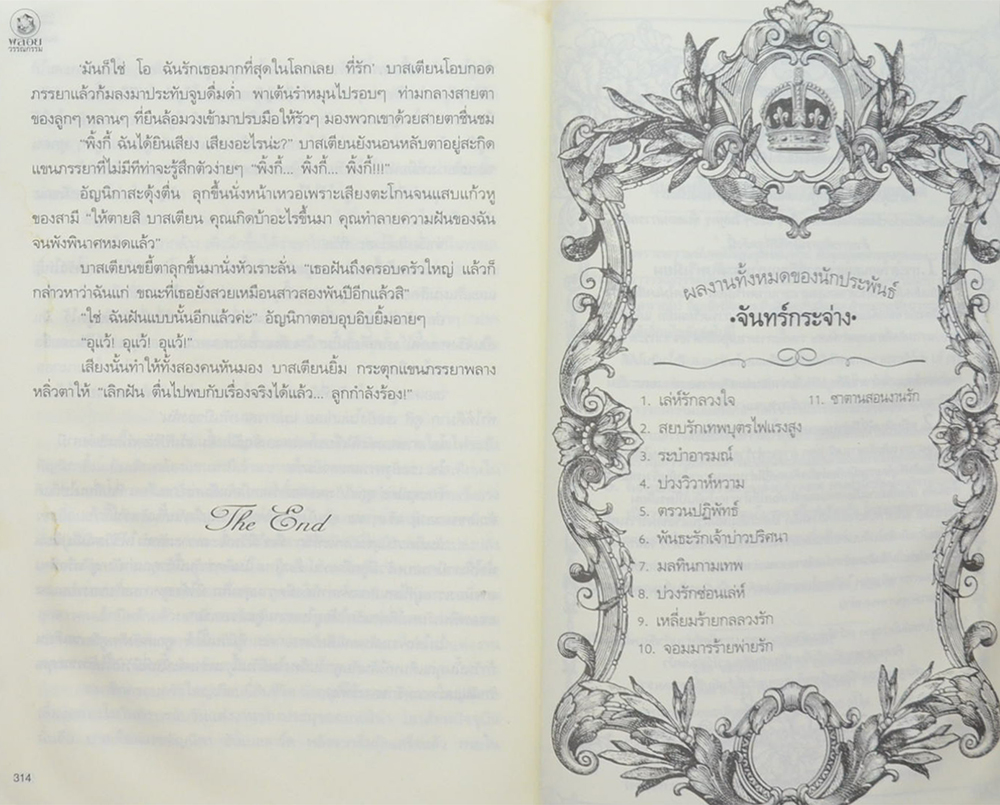 พลอย
วรรณกรรม
'มันก็ใช่ โอ ฉันรักเธอมากที่สุดในโลกเลย ที่รัก' บาสเตียนโอบกอด
ภรรยาแล้วก้มลงมาประทับจูบดื่มด่ำ พาเต้นรำหมุนไปรอบๆ ท่ามกลางสายตา
ของลูกๆ หลานๆ ที่ยืนล้อมวงเข้ามาปรบมือให้รัวๆ มองพวกเขาด้วยสายตาชื่นชม
"พิ้งกี้ ฉันได้ยินเสียง เสียงอะไรน่ะ?" บาสเตียนยังนอนหลับตาอยู่สะกิด
แขนภรรยาที่ไม่มีทีท่าจะรู้สึกตัวง่ายๆ "พิ้งกี้... พิ้งกี้... พิ้งกี้!!!"
อัญนิกาสะดุ้งตื่น ลุกขึ้นนั่งหน้าเหวอเพราะเสียงตะโกนจนแสบแก้วหู
ของสามี "ให้ตายสิ บาสเตียน คุณเกิดบ้าอะไรขึ้นมา คุณทำลายความฝันของฉัน
จนพังพินาศหมดแล้ว"
บาสเตียนขยี้ตาลุกขึ้นมานั่งหัวเราะลั่น "เธอฝันถึงครอบครัวใหญ่ แล้วก็
กล่าวหาว่าฉันแก่ ขณะที่เธอยังสวยเหมือนสาวสองพันปีอีกแล้วสิ"
"ใช่ ฉันฝันแบบนั้นอีกแล้วค่ะ" อัญนิกาตอบอุบอิบยิ้มอายๆ
"อุแว้! อุแว้! อุแว้!"
เสียงนั้นทำให้ทั้งสองคนหันมอง บาสเตียนยิ้ม กระตุกแขนภรรยาพลาง
หลิ่วตาให้ "เลิกฝัน ตื่นไปพบกับเรื่องจริงได้แล้ว... ลูกกำลังร้อง!"
The End
314
ผลงานทั้งหมดของนักประพันธ์
•จันทร์กระจ่าง•
1. เล่ห์รักลวงใจ
2. สยบรักเทพบุตรไฟแรงสูง
3. ระบำอารมณ์
4. บ่วงวิวาห์หวาม
5. ตรวนปฏิพัทธ์
6. พันธะรักเจ้าบ่าวปริศนา
7. มลทินกามเทพ
8. บ่วงรักซ่อนเล่ห์
9. เหลี่ยมร้ายกลลวงรัก
10. จอมมารร้ายพ่ายรัก
11. ซาตานสอนงานรัก